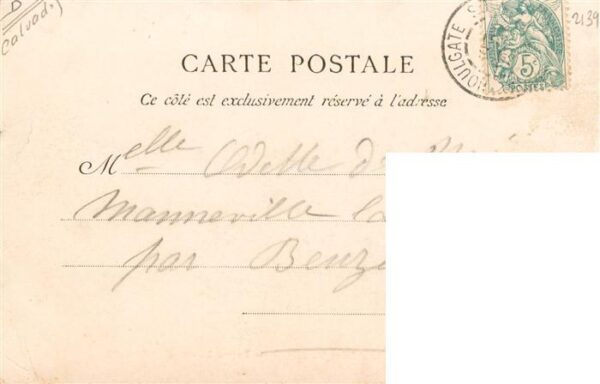 D
Calvados
2139
HOULGATE
5c
POSTES
CARTE POSTALE
Ce côté est exclusivement réservé à l'adresse
Melle Odette d
Manneville la
par Benze